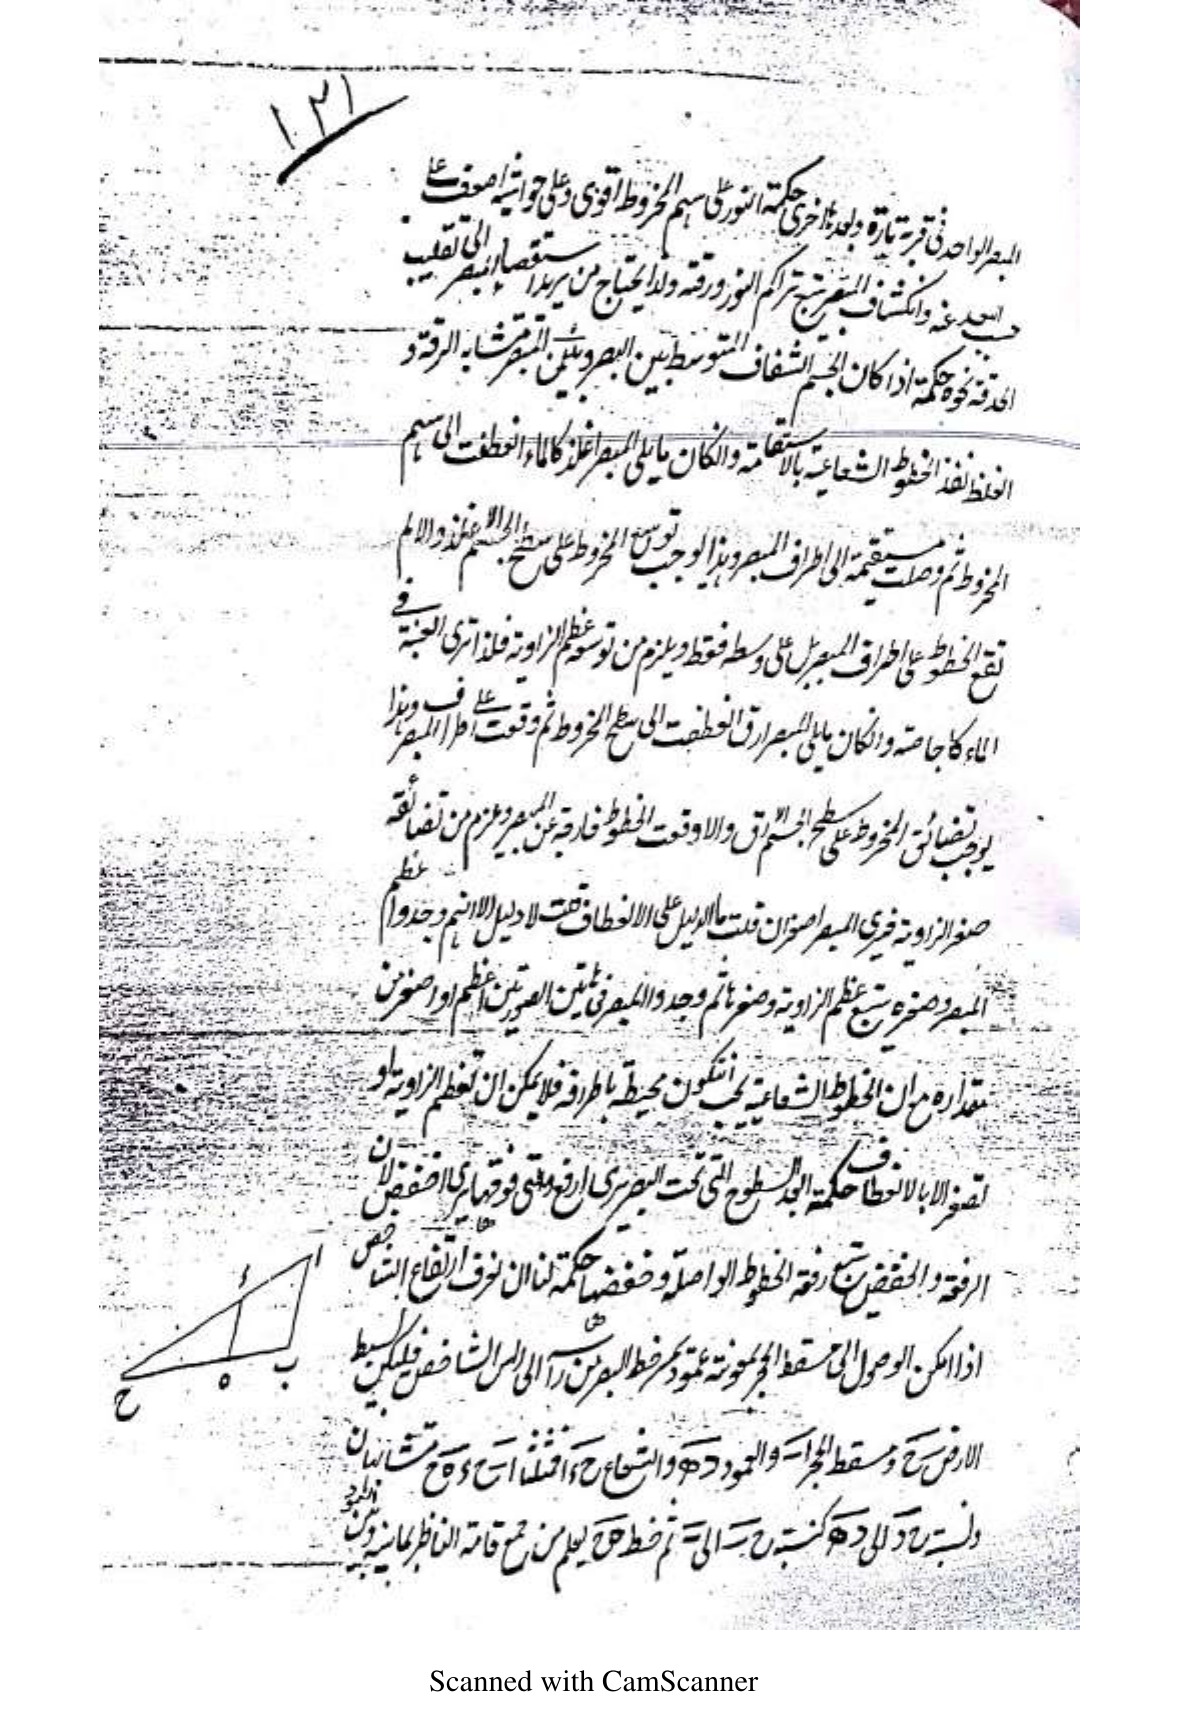 ١٣١
المبصر الواحد فى قربه تارة وبعده اخرى حكمة النور على سهم المخروط اقوى وعلى حواشيه اضعف على
حسب البعد عنه وانكشاف المبصر يتبع تراكم النور ورقته ولذا يحتاج من يريد استقصاء المبصر الى تقليب
الحدقة نحوه حكمة اذا كان الجسم الشفاف المتوسط بين البصر وبين المبصر متشابه الرقة و
الغلظ نفذ الخطوط الشعاعية بالاستقامة والكان ما يلى المبصر اغلظ كالماء انعطفت الى سهم
المخروط ثم وصلت مستقيمة الى اطراف المبصر وهذا يوجب توسع المخروط على سطح الجسم الاغلظ والا لم
تقع الخطوط على اطراف المبصر بل على وسطه فقط ويلزم من توسعه عظم الزاوية فلذا ترى العنبة فى
الماء كاجاصة والكان ما يلى المبصر ارق انعطفت الى سطح المخروط ثم وقعت على اطراف المبصر وهذا
يوجب تضائق المخروط على سطح الجسم الارق والا وقعت الخطوط خارجة عن المبصر ويلزم من تضائقه
صغر الزاوية فيرى المبصر اصغر ان قلت ما الدليل على الانعطاف قلت لا دليل الا انهم وجدوا عظم
المبصر وصغره يتبع عظم الزاوية وصغرها ثم وجدوا المبصر فى هاتين الصورتين اعظم او اصغر من
مقداره مع ان الخطوط الشعاعية يجب ان تكون محيطة باطرافه فلا يمكن ان تعظم الزاوية او
تصغر الا بالانعطاف حكمة السطوح التى تحت البصر يرى ارفع والتى فوقها يرى اخفض لان
الرفعة والخفض يتبع رفعة الخطوط الواصلة وخفضها حكمة لنا ان نعرف ارتفاع الشاخص
اذا امكن الوصول الى مسقط الحجر بمعونة عمود يمر خط البصر من راسه الى راس الشاخص فليكن بسيط
الارض ب ح ومسقط الحجر ا ب والعمود د ه والشعاع ح د ا فمثلثا ا ب ح د ه ح متشابهان
ونسبة ح د الى د ه كنسبة ح ب الى ب ثم خط ه ح يعلم من جمع قامة الناظر بما بينه وبين العمود
ا
ء
ب
ه
ح
Scanned with CamScanner